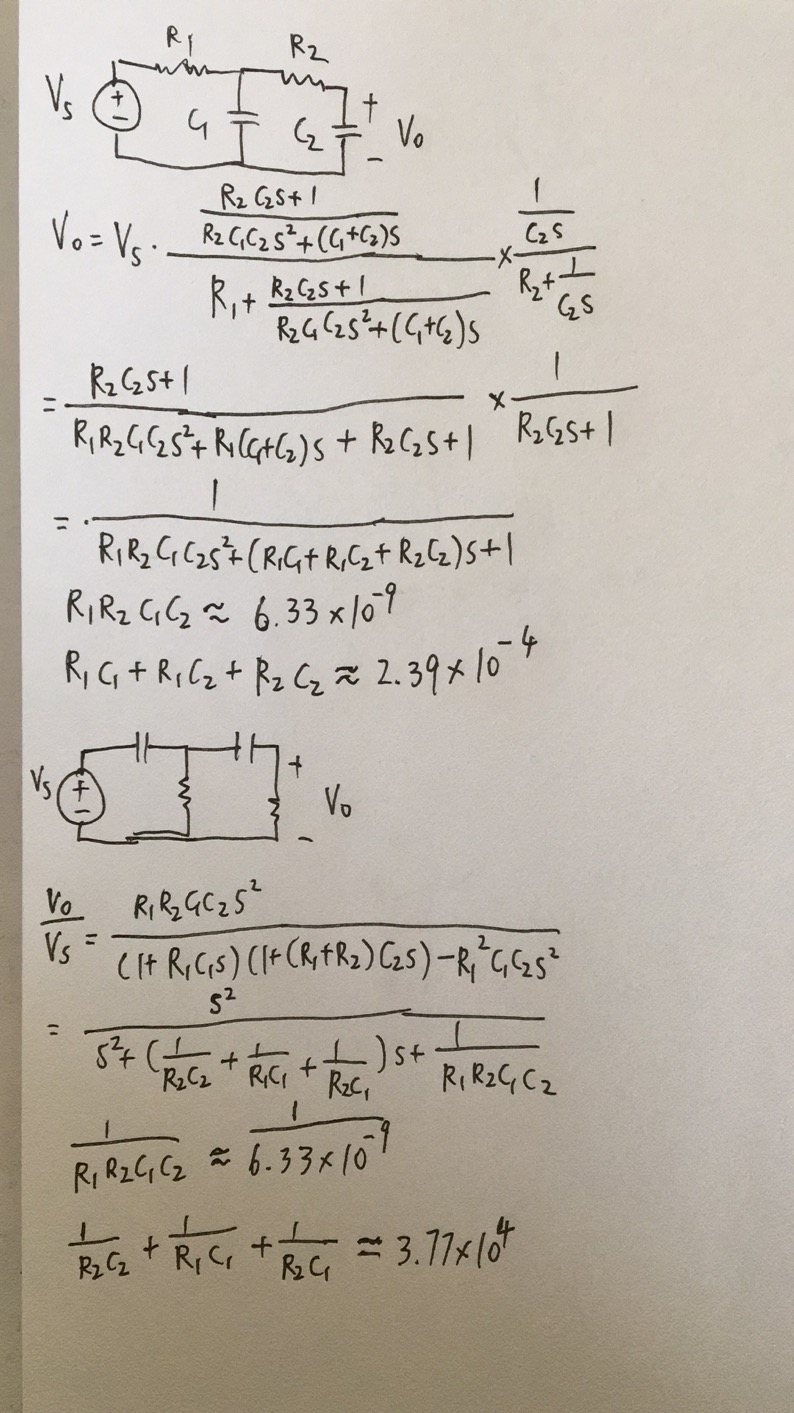 R1 R2
Vs C1 C2 + − Vo
Vo = Vs · ((R2C2S+1)/(R2C1C2S²+(C1+C2)S))/(R1+(R2C2S+1)/(R2C1C2S²+(C1+C2)S)) × (1/(C2S))/(R2+1/(C2S))
= (R2C2S+1)/(R1R2C1C2S²+R1(C1+C2)S+R2C2S+1) × 1/(R2C2S+1)
= · 1/(R1R2C1C2S²+(R1C1+R1C2+R2C2)S+1)
R1R2C1C2 ≈ 6.33×10⁻⁹
R1C1+R1C2+R2C2 ≈ 2.39×10⁻⁴
Vs + − Vo
Vo/Vs = R1R2C1C2S²/((1+R1C1S)(1+(R1+R2)C2S)−R1²C1C2S²)
= S²/(S²+(1/(R2C2)+1/(R1C1)+1/(R2C1))S+1/(R1R2C1C2))
1/(R1R2C1C2) ≈ 1/(6.33×10⁻⁹)
1/(R2C2)+1/(R1C1)+1/(R2C1) ≈ 3.77×10⁴